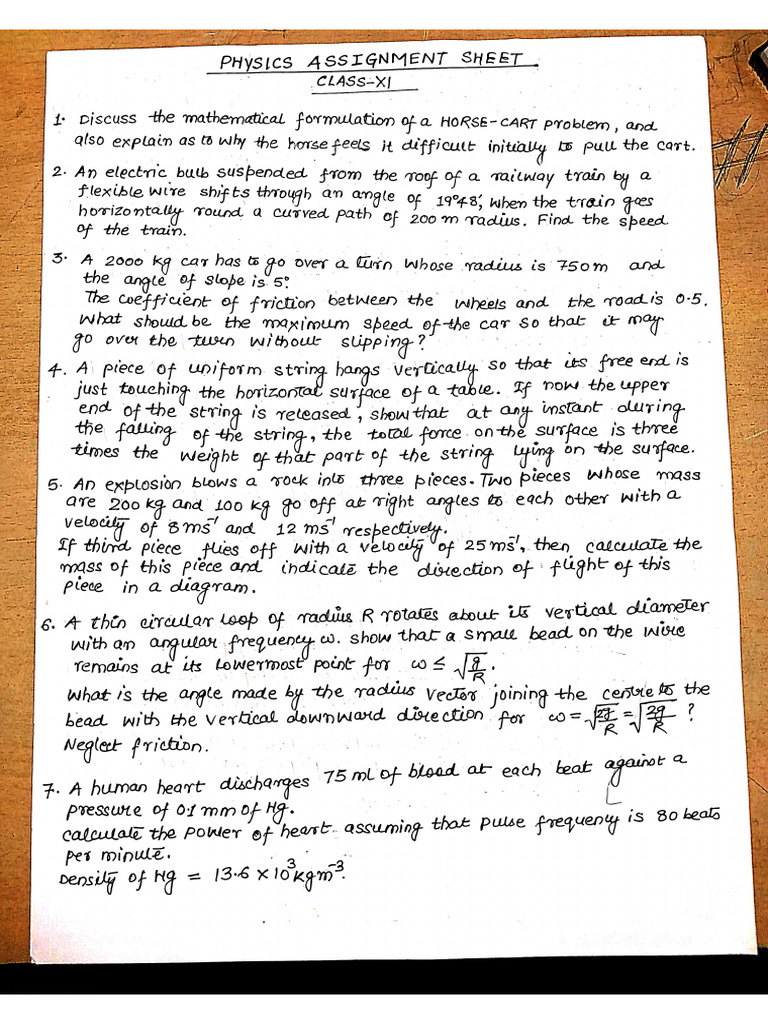 PHYSICS ASSIGNMENT SHEET
CLASS-XI
1. Discuss the mathematical formulation of a HORSE-CART problem, and
also explain as to why the horse feels it difficult initially to pull the cart.
2. An electric bulb suspended from the roof of a railway train by a
flexible wire shifts through an angle of 19°48', when the train goes
horizontally round a curved path of 200 m radius. Find the speed
of the train.
3. A 2000 kg car has to go over a turn whose radius is 750m and
the angle of slope is 5°.
The coefficient of friction between the wheels and the road is 0.5.
What should be the maximum speed of the car so that it may
go over the turn without slipping?
4. A piece of uniform string hangs vertically so that its free end is
just touching the horizontal surface of a table. If now the upper
end of the string is released, show that at any instant during
the falling of the string, the total force on the surface is three
times the weight of that part of the string lying on the surface.
5. An explosion blows a rock into three pieces. Two pieces whose mass
are 200 kg and 100 kg go off at right angles to each other with a
velocity of 8 ms⁻¹ and 12 ms⁻¹ respectively.
If third piece flies off with a velocity of 25 ms⁻¹, then calculate the
mass of this piece and indicate the direction of flight of this
piece in a diagram.
6. A thin circular loop of radius R rotates about its vertical diameter
with an angular frequency ω. show that a small bead on the wire
remains at its lowermost point for ω ≤ √(g/R).
What is the angle made by the radius vector joining the centre to the
bead with the vertical downward direction for ω = √(2g/R) = √(2g/R) ?
Neglect friction.
7. A human heart discharges 75 ml of blood at each beat against a
pressure of 0.1 mm of Hg.
Calculate the power of heart assuming that pulse frequency is 80 beats
per minute.
Density of Hg = 13.6 × 10³ kg m⁻³.